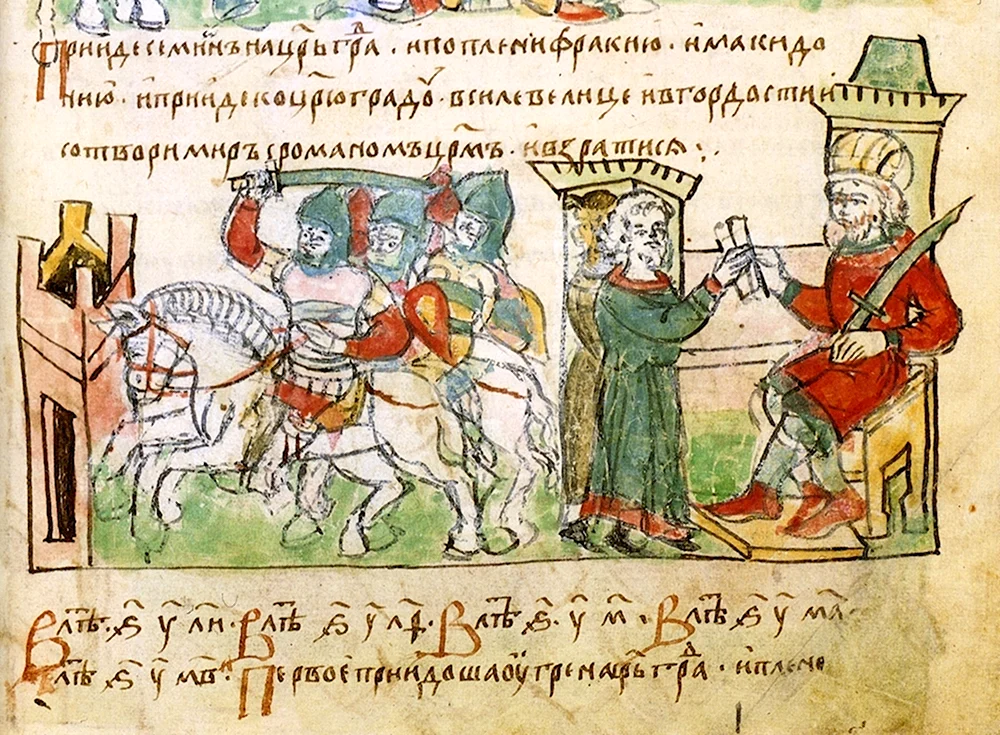 Прииде семиѡ҃нъ на цр҃ьгра҃д · и поплени фракию · и макидо
нию · и прииде ко цр҃югрⷣаоу · в силе велице и в гордости и
сотвори миръ с романомъ цр҃мъ · и взвратисѧ ⁘
В лѣт҃ · ѕ҃ у҃ л҃и · В лѣт҃ ѕ҃ у҃ л҃ѳ · В лѣт҃ ѕ҃ · у҃ м҃ · В лѣт҃ ѕ҃ у҃ м҃а ·
В лѣт҃ ѕ҃ у҃ м҃в · Первое приидоша оугре на цр҃ьгра҃д · и плено